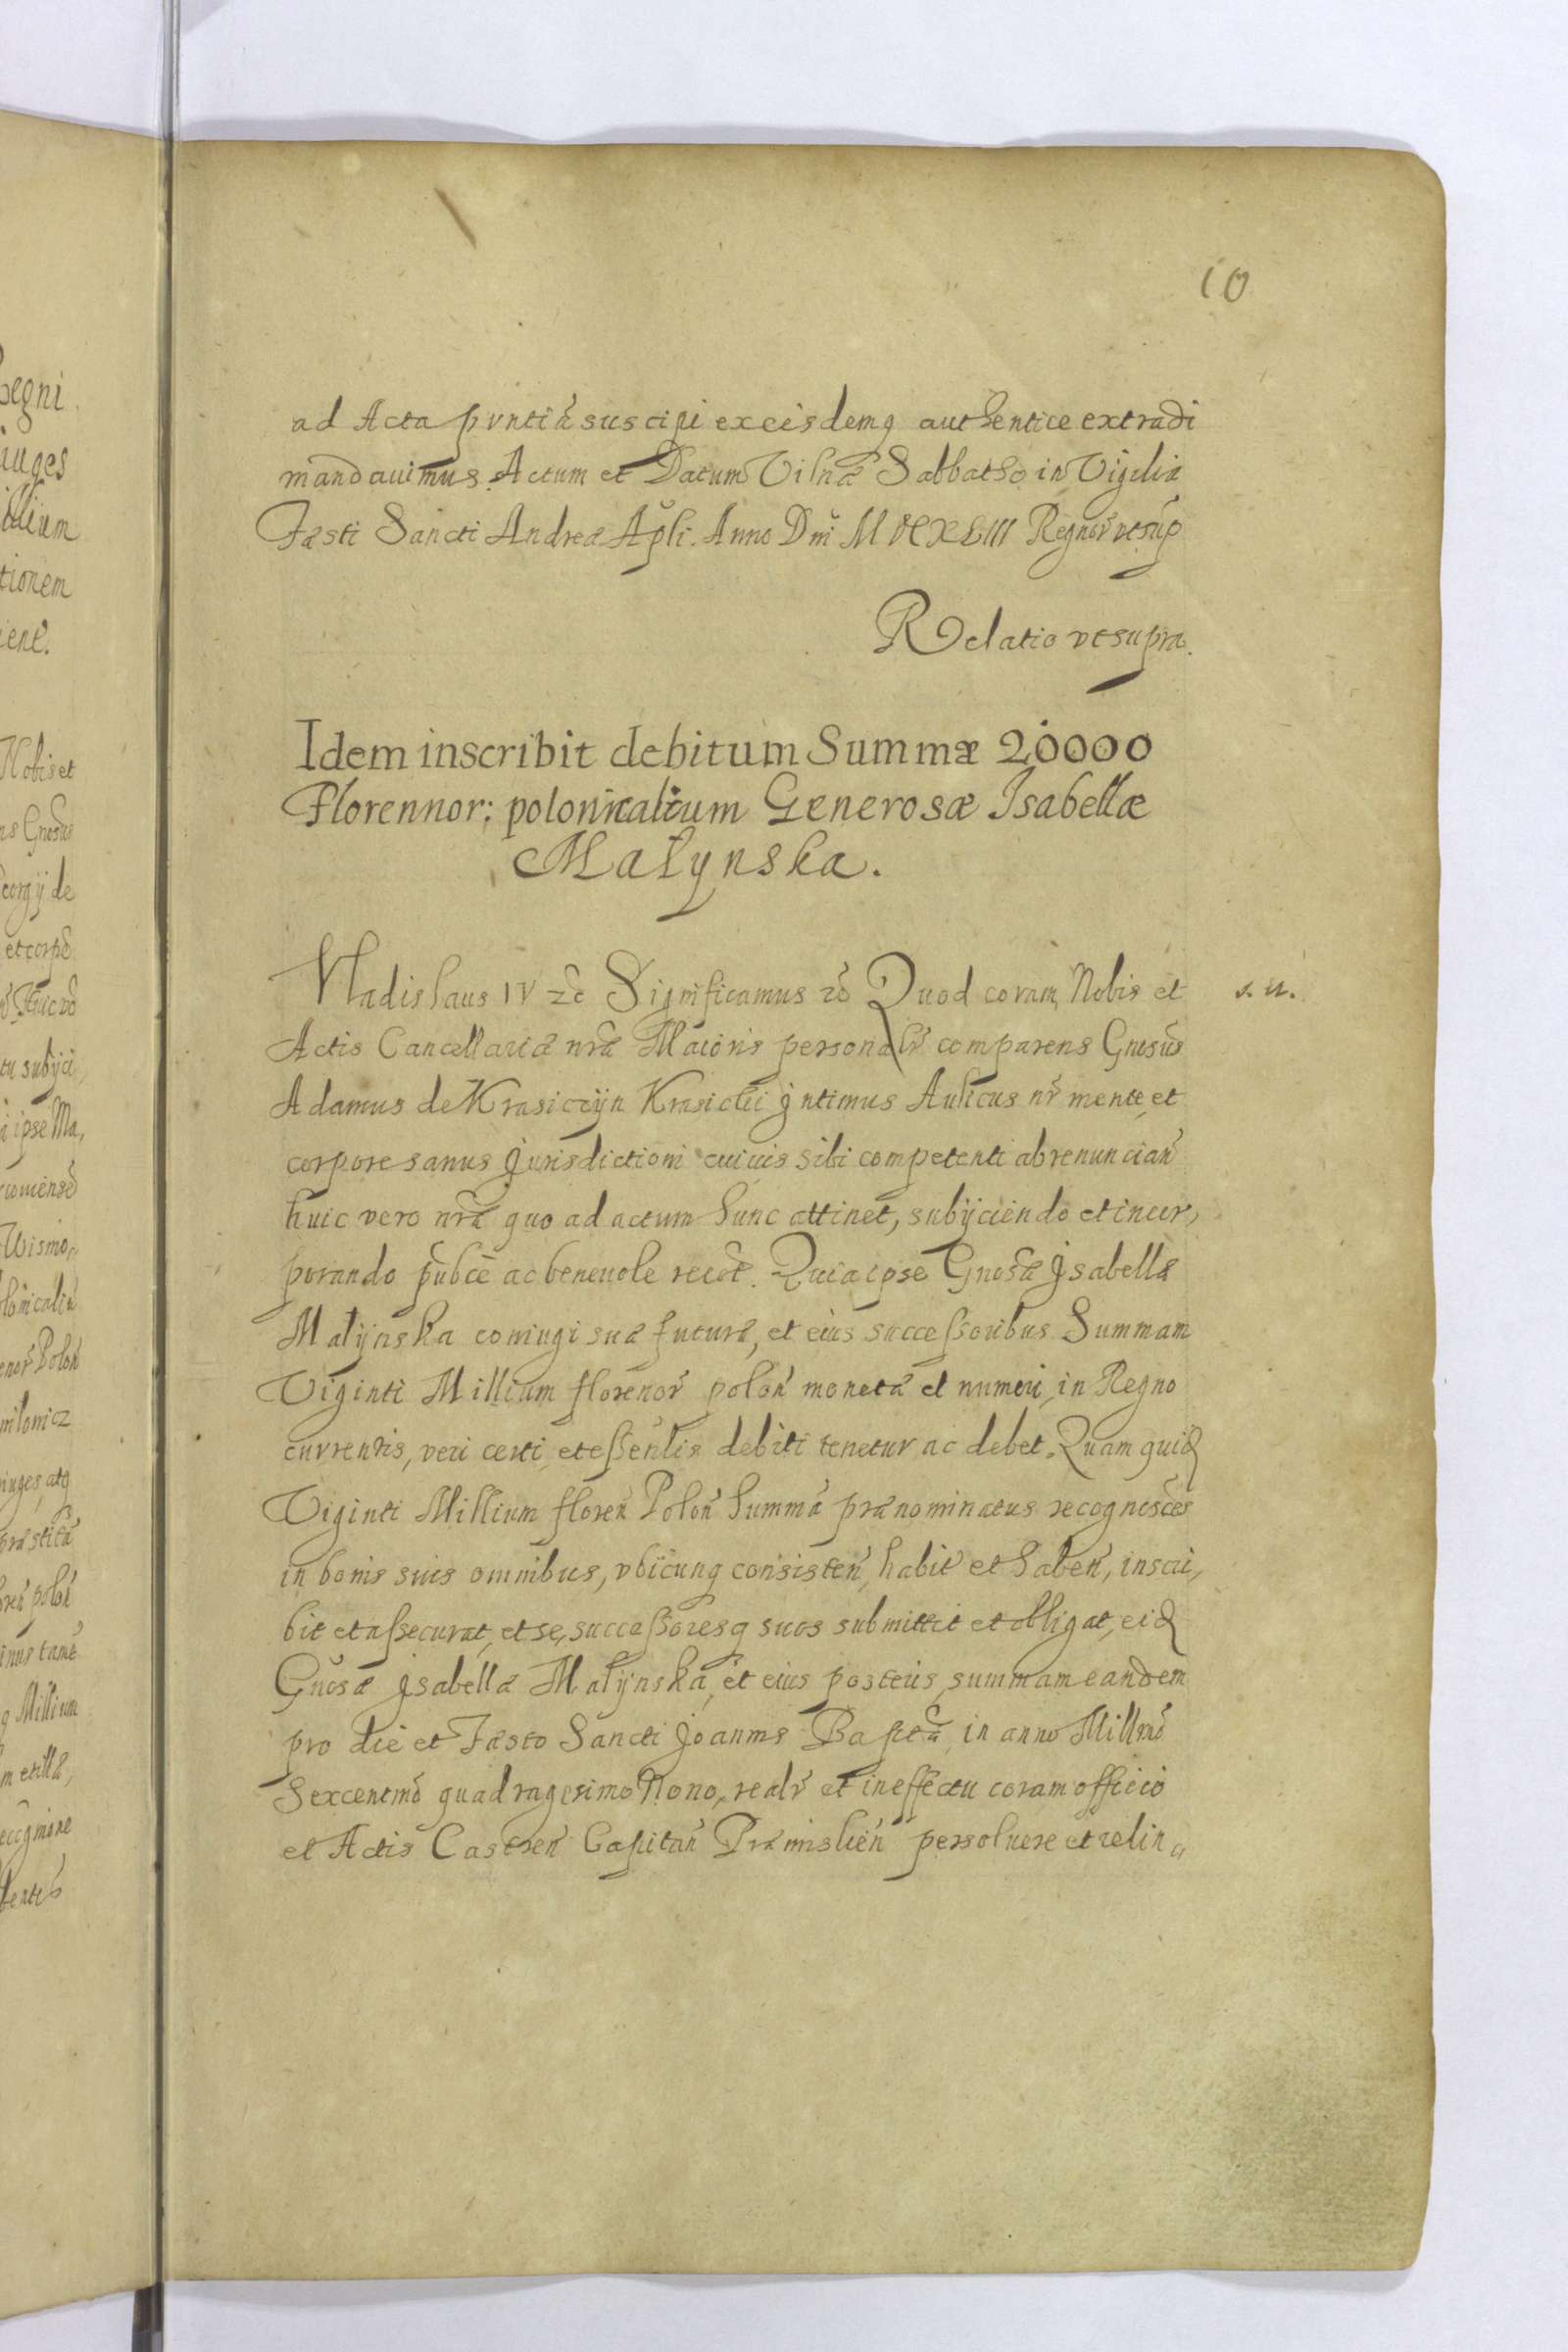 10
ad Acta pvntiã suscipi ex eisdemq authentice extradi
mandauimus. Actum et Datum Vilnæ Sabbatho in Vigilia
Fæsti Sancti Andreæ Apli. Anno Dni MDCXLIII Regnor vt sup
Relatio vt supra.
Idem inscribit debitum Summæ 20000
Florennor: polonicalium Generosæ Isabellæ
Małynska.
Vladislaus IV &c Significamus &c Quod coram Nobis et
s. u.
Actis Cancellariæ nræ Maioris personalr comparens Gnosus
Adamus de Krasiczÿn Krasicki Intimus Aulicus nr mente et
corpore sanus Jurisdictioni cuiuis sibi competenti abrenuncian
huic vero nræ quo ad actum hunc attinet, subÿciendo et incor,
porando pubce ac beneuole recot. Quia ipse Gnosæ Isabellæ
Małÿnska coniugi suæ futuræ, et eius successoribus Summam
Viginti Millium florenor polon monetæ et numeri, in Regno
currentis, veri certi, et essenlis debiti tenetur ac debet. Quam quid
Viginti Millium floren Polon Summã prænominatus recognosces
in bonis suis omnibus, vbicunq consisten, habit et haben, inscri,
bit et assecurat, et se, successoresq suos submittit et obligat, eid
Gnosæ Isabellæ Małÿnska, et eius posteris, summam eandem
pro die et Fæsto Sancti Joannis Baptæ, in anno Millmo
Sexcentmo quadragesimo Nono, realr et in effectu coram officio
et Actis Castren Capitan Præmislien persoluere et relin,